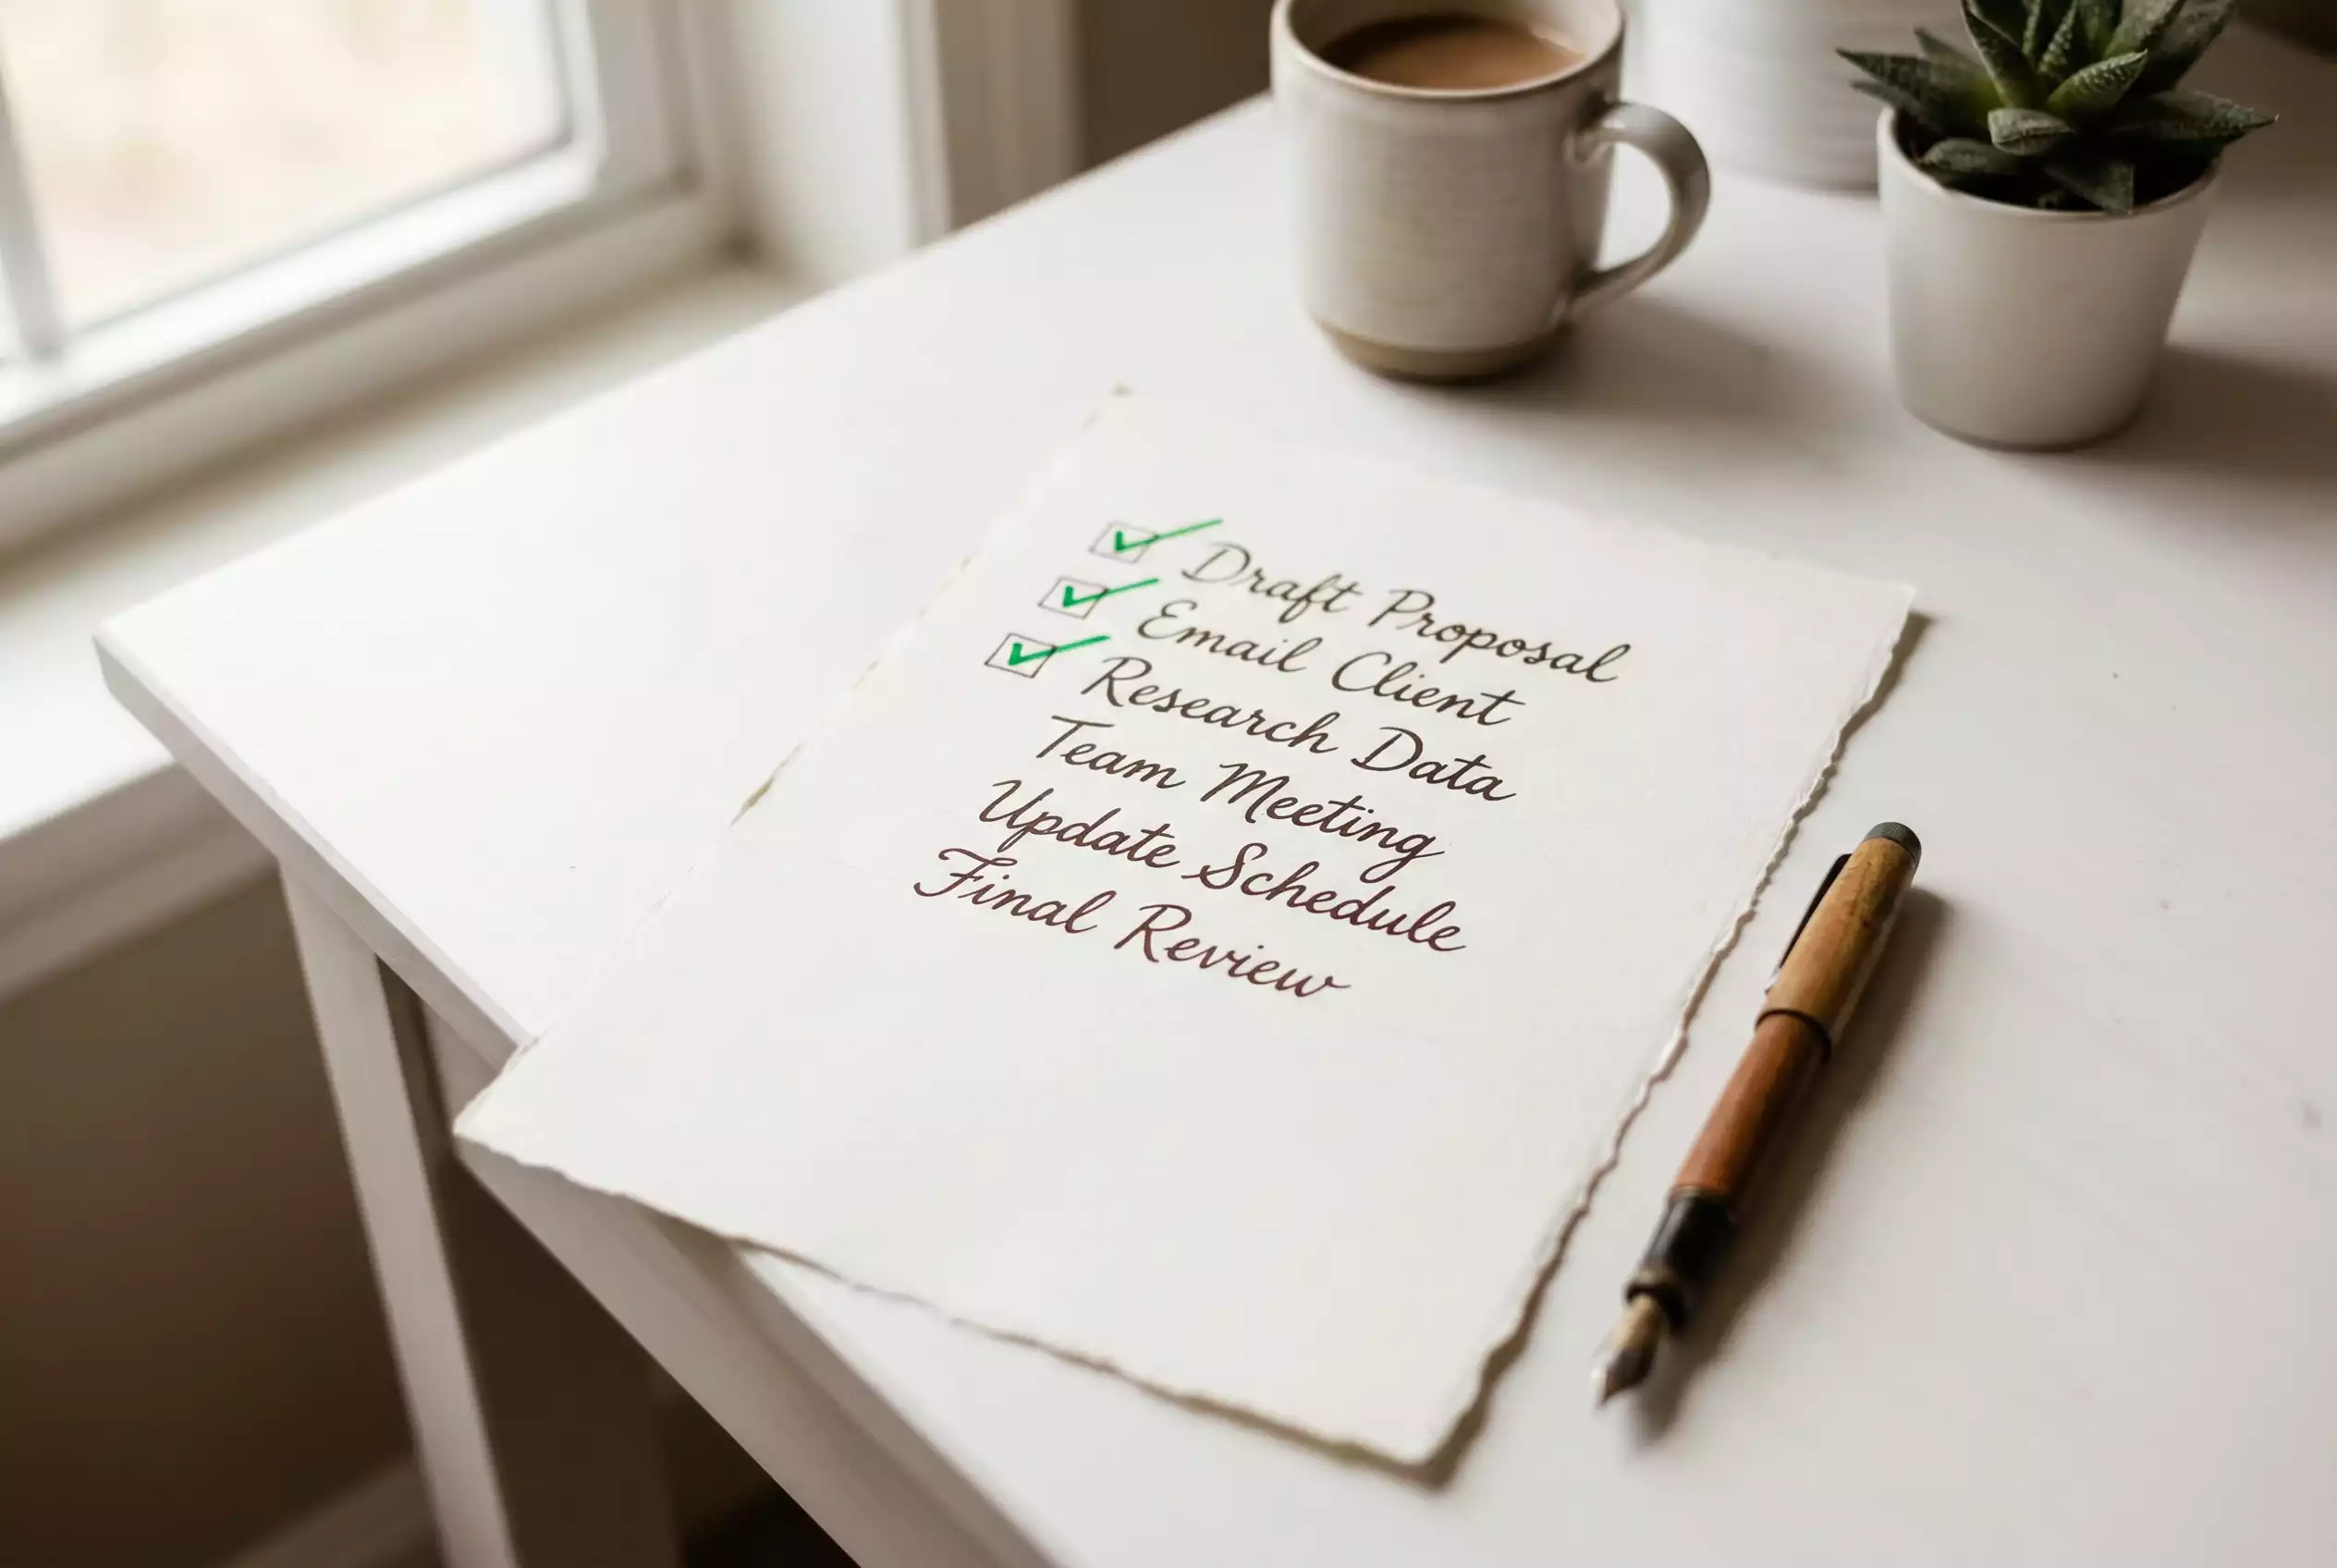 Draft Proposal
Email Client
Research Data
Team Meeting
Update Schedule
Final Review